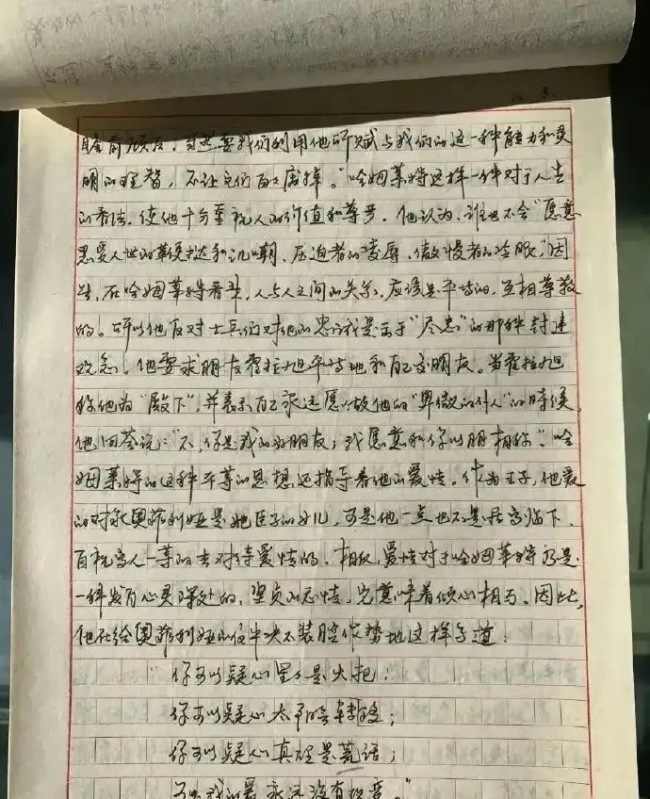 3.
瞻前顾后，当然要我们利用他所赋与我们的这一种能力和灵
明的理智，不让它们白白废掉。”哈姆莱特这样一种对于人生
的看法，使他十分重视人的价值和尊严。他认为，谁也不会“愿意
忍受人世的鞭挞和讥嘲、压迫者的凌辱、傲慢者的冷眼”，因
此，在哈姆莱特看来，人与人之间的关系，应该是平等的，互相尊敬
的。所以他反对士兵们对他的忠诚是出于“尽忠”的那种封建
观念。他要求朋友霍拉旭平等地和自己交朋友。当霍拉旭
称他为“殿下”，并表示自己永远愿做他的“卑微的仆人”的时候，
他回答说：“不，你是我的好朋友；我愿意和你以朋友相称”。哈
姆莱特的这种平等的思想还指导着他的爱情。作为王子，他爱
的对象奥菲利娅是她臣子的女儿，可是他一点也不是居高临下、
自视高人一等的去对待爱情的。相反，爱情对于哈姆莱特乃是
一种发自心灵深处的，坚贞的恋情，完意味着倾心相与。因此，
他在给奥菲利娅的信中决不装腔作势地这样写道：
“你可以疑心星星是火把；
你可以疑心太阳会转移；
你可以疑心真理是谎话；
可是我的爱永远没有改变。”